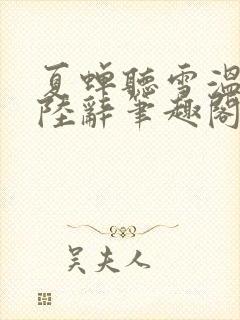 夏蟬聽雪溫
陸辭筆趣閣
吴夫人